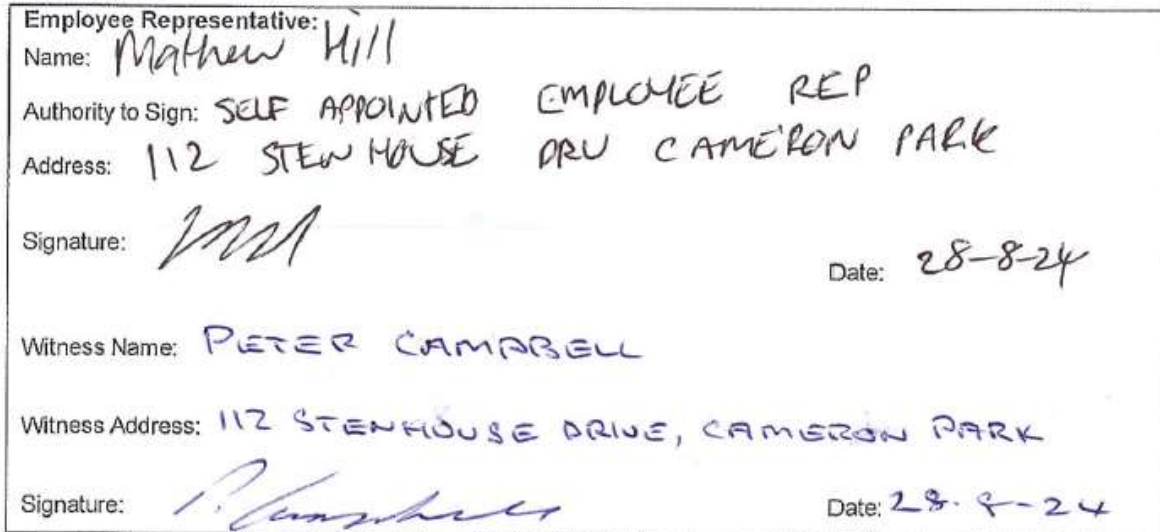 Employee Representative:
Name: Mathew Hill
Authority to Sign: SELF APPOINTED EMPLOYEE REP
Address: 112 STENHOUSE DRV CAMERON PARK
Signature:
Date: 28-8-24
Witness Name: PETER CAMPBELL
Witness Address: 112 STENHOUSE DRIVE, CAMERON PARK
Signature: P. Campbell
Date: 28-8-24